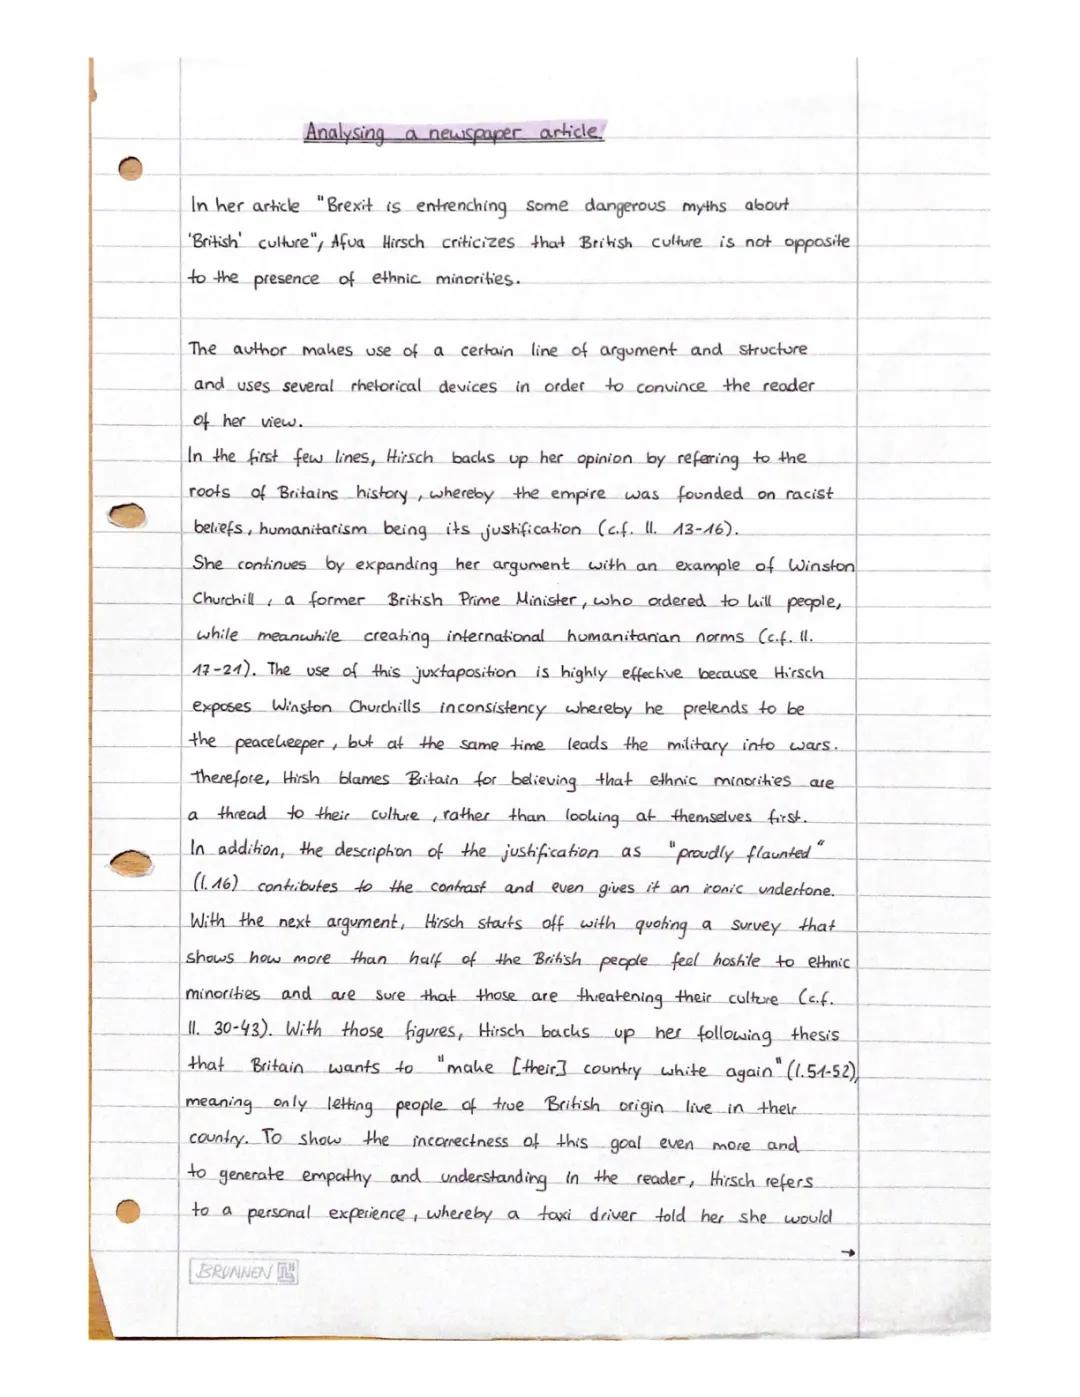 Analysing a newspaper article
In her article "Brexit is entrenching some dangerous myths about
'British' culture", Afua Hirsch criticizes that British culture is not opposite
to the presence of ethnic minorities.
The author makes use of a certain line of argument and structure
and uses several rhetorical devices in order to convince the reader
of her view.
In the first few lines, Hirsch backs up her opinion by refering to the
roots of Britains history, whereby the empire was founded on racist
beliefs, humanitarism being its justification (c.f. ll. 13-16).
She continues by expanding her argument with an example of Winston
Churchill, a former British Prime Minister, who ordered to kill people,
while meanwhile creating international humanitarian norms (c.f. ll.
17-21). The use of this juxtaposition is highly effective because Hirsch
exposes Winston Churchills inconsistency whereby he pretends to be
the peacekeeper, but at the same time leads the military into wars.
Therefore, Hirsh blames Britain for believing that ethnic minorities are
a thread to their culture, rather than looking at themselves first.
In addition, the description of the justification as "proudly flaunted"
(l. 16) contributes to the contrast and even gives it an ironic undertone.
With the next argument, Hirsch starts off with quoting a survey that
shows how more than half of the British people feel hostile to ethnic
minorities and are sure that those are threatening their culture (c.f.
ll. 30-43). With those figures, Hirsch backs up her following thesis
that Britain wants to "make [their] country white again" (l. 51-52),
meaning only letting people of true British origin live in their
country. To show the incorrectness of this goal even more and
to generate empathy and understanding in the reader, Hirsch refers
to a personal experience, whereby a taxi driver told her she would
→
BRUNNEN